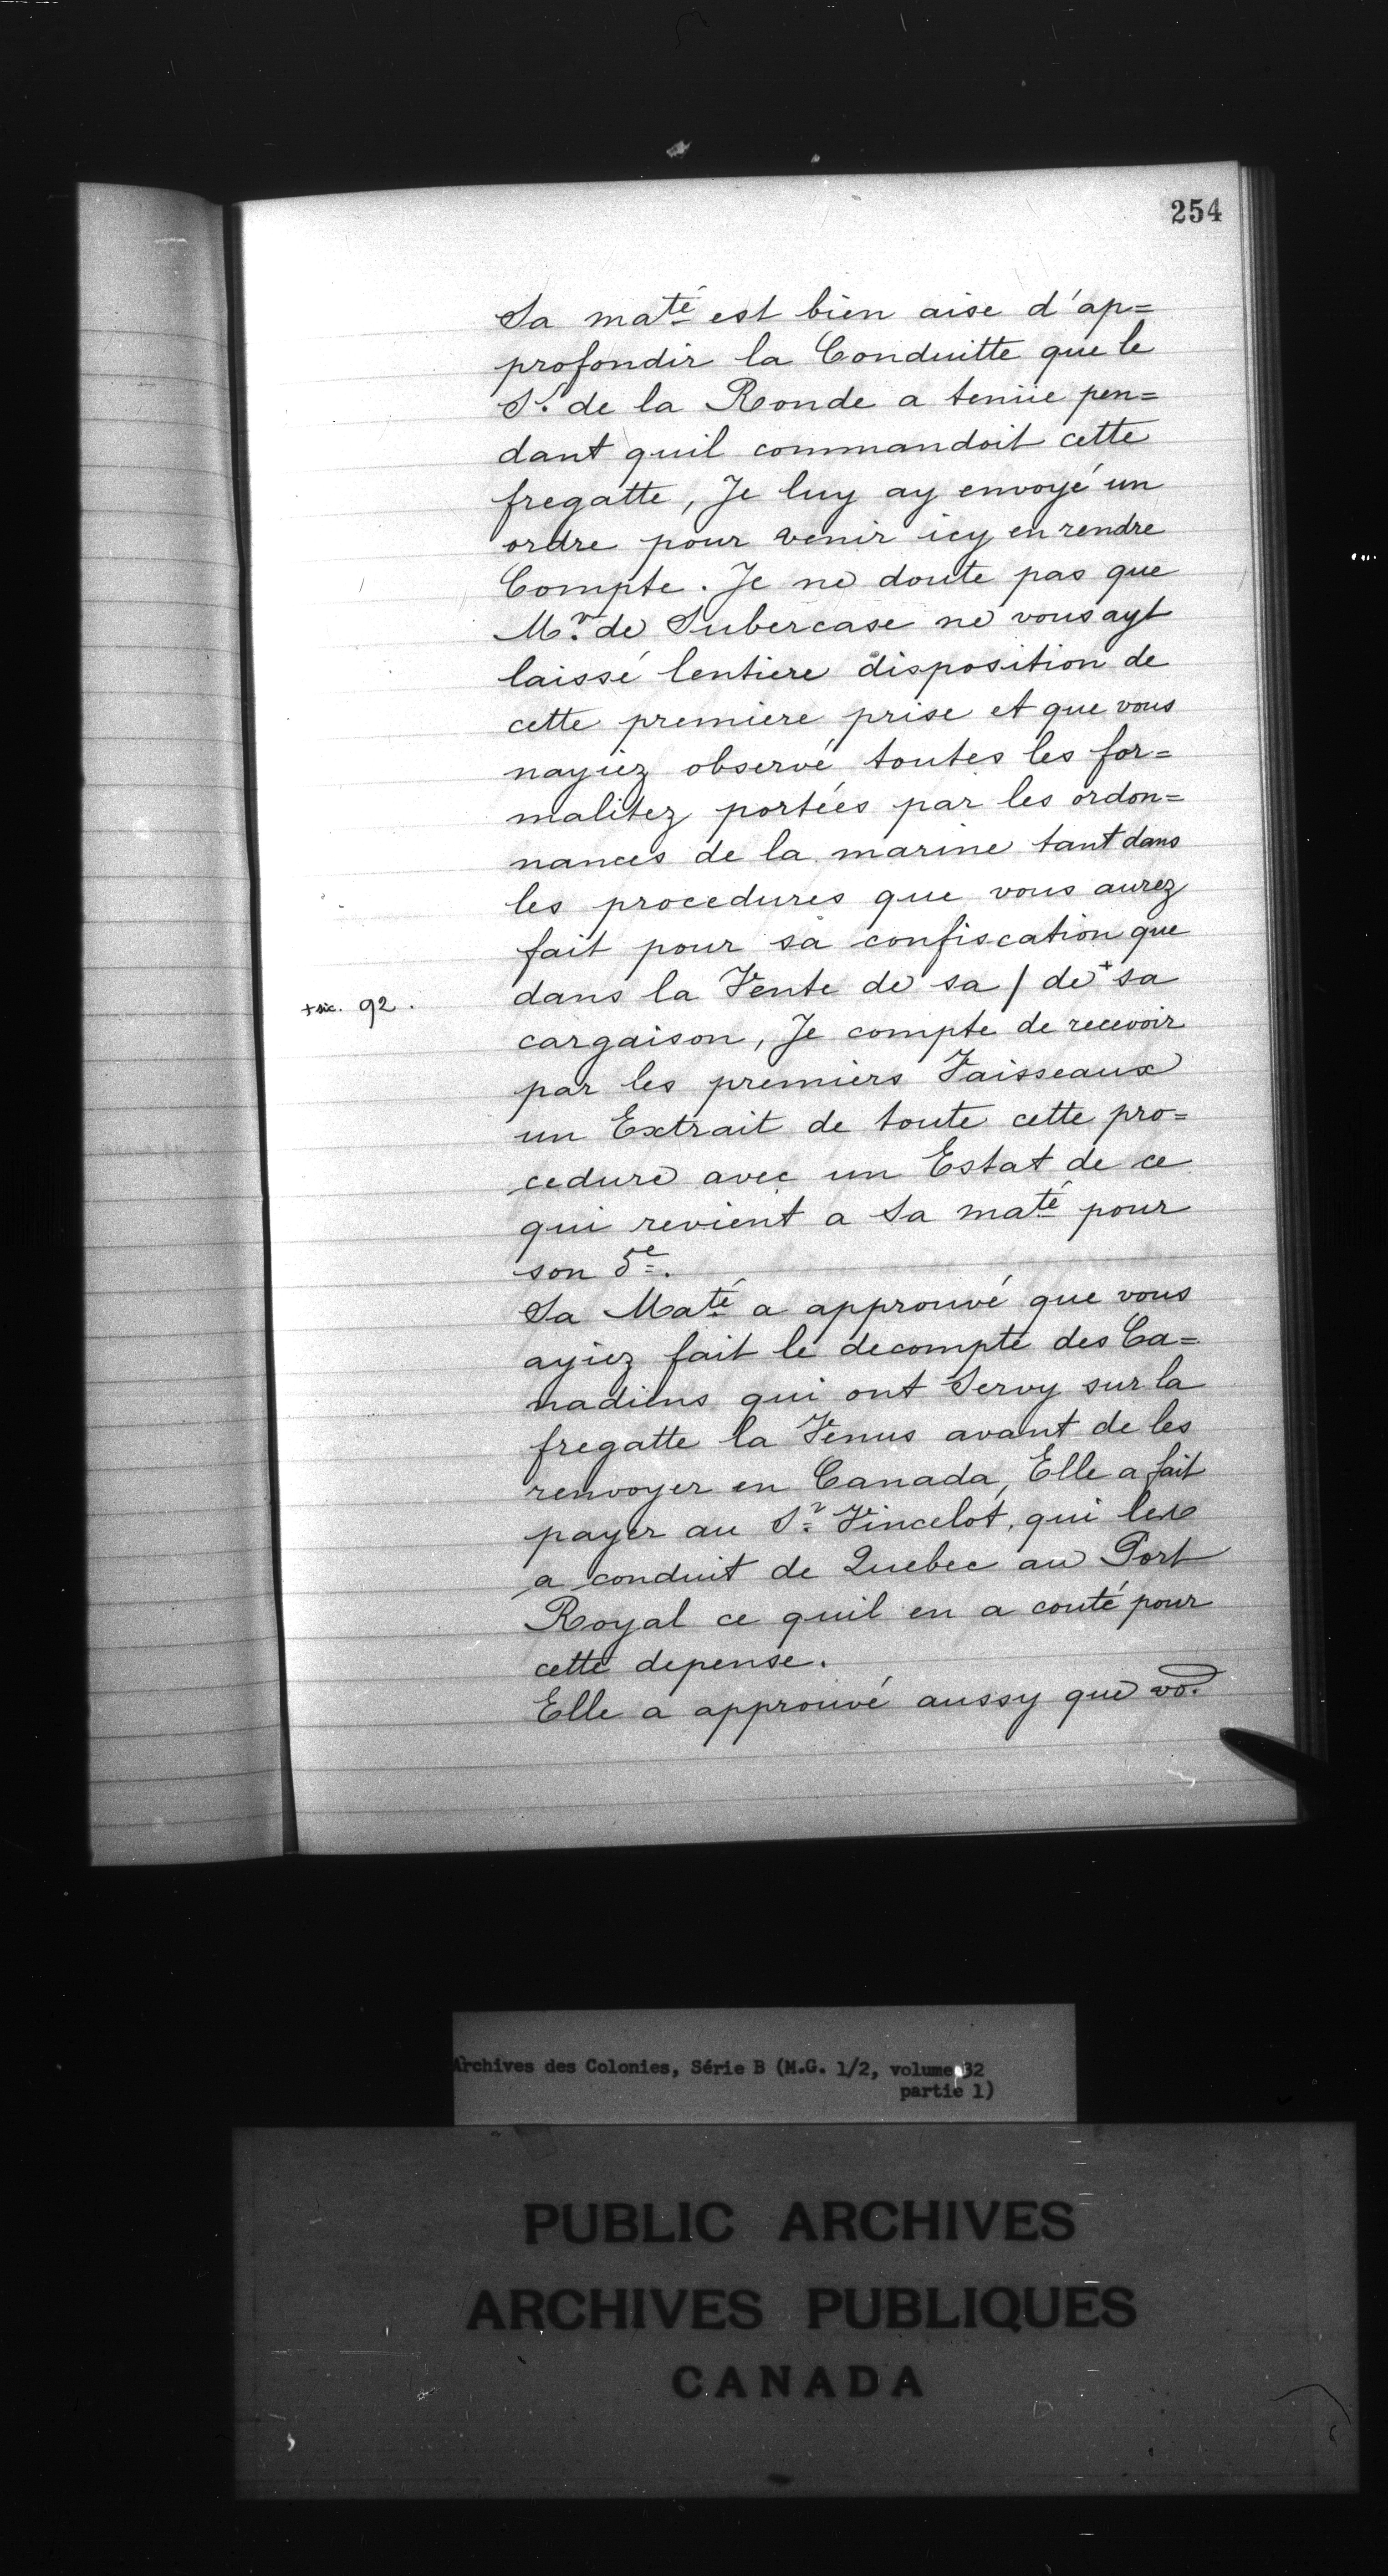 254
Sa maté est bien aise d'ap=
profondir la Conduitte que le
Sr. de la Ronde a tenüe pen=
dant quil commandoit cette
fregatte, Je luy ay envoyé un
ordre pour venir icy en rendre
Compte. Je ne doute pas que
Mr. de Subercase ne vous ayt
laissé lentiere disposition de
cette premiere prise et que vous
nayiez observé toutes les for=
malitez portées par les ordon=
nances de la marine tant dans
les procedures que vous aurez
fait pour sa confiscation que
+ sic. 92. dans la Vente de sa / de + sa
cargaison, Je compte de recevoir
par les premiers Vaisseaux
un Extrait de toute cette pro=
cedure avec un Estat de ce
qui revient a Sa maté pour
son 5e.
Sa Maté a approuvé que vous
ayiez fait le decompte des Ca=
nadiens qui ont Servy sur la
fregatte la Venus avant de les
renvoyer en Canada, Elle a fait
payer au Sr Vincelot, qui les
a conduit de Quebec au Port
Royal ce quil en a couté pour
cette depense.
Elle a approuvé aussy que vo.
Archives des Colonies, Série B (M.G. 1/2, volume 32
partie 1)
PUBLIC ARCHIVES
ARCHIVES PUBLIQUES
CANADA